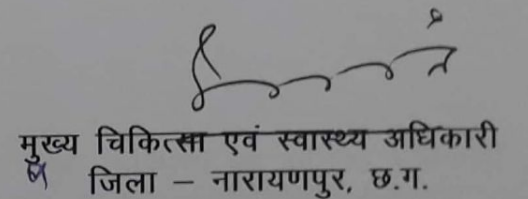 मुख्य चिकित्सा एवं स्वास्थ्य अधिकारी
जिला – नारायणपुर, छ.ग.